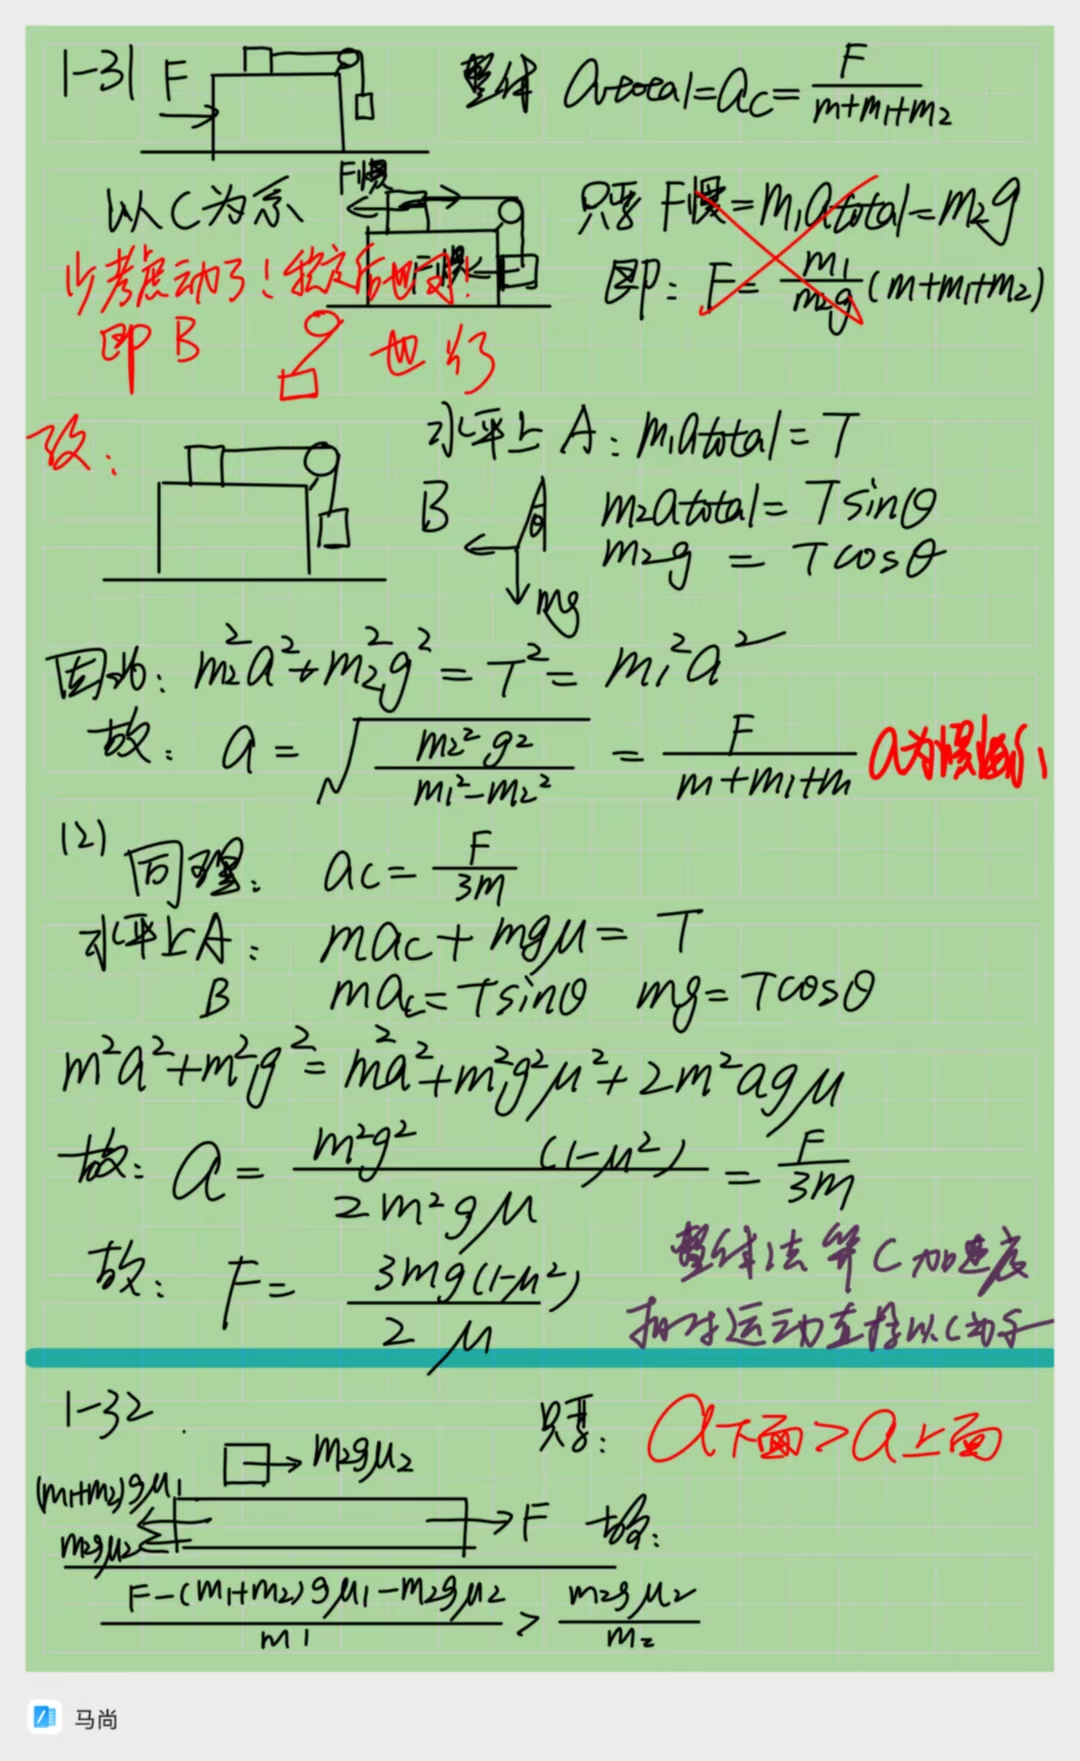 1-31 F 整体 a total=ac=F/(m+m1+m2)
以C为系 F惯 只要 F惯=m1a total=m2g
少考虑动了！稳定后也对！ F惯 即：F=m1/(m2g)(m+m1+m2)
即 B 也行
致：
水平上 A：m1a total=T
B θ m2a total=Tsinθ
m2g=Tcosθ
mg
因此：m2²a²+m2²g²=T²=m1²a²
故：a=√(m2²g²/(m1²-m2²))=F/(m+m1+m) a为惯
(2) 同理：ac=F/3m
水平上A：mac+mgμ=T
B mac=Tsinθ mg=Tcosθ
m²a²+m²g²=m²a²+m²g²μ²+2m²agμ
故：a=m²g²(1-μ²)/(2m²gμ)=F/3m
故：F=3mg(1-μ²)/(2μ)
整体法算C加速度
相对运动直接以C为系
1-32 只要：a下面>a上面
m2gμ2
(m1+m2)gμ1
m2gμ2 F 故：
(F-(m1+m2)gμ1-m2gμ2)/m1>m2gμ2/m2
马尚